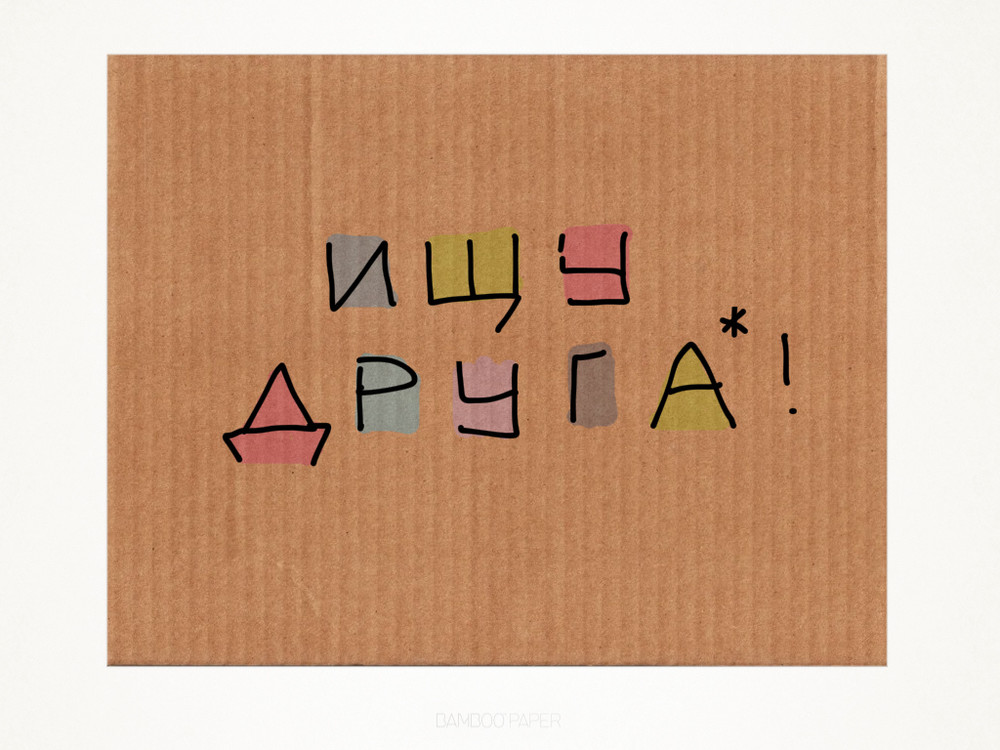 ИЩУ
ДРУГА*!
BAMBOO PAPER